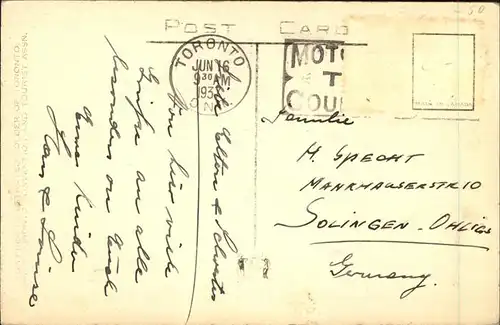 POST CARD
TORONTO
JUN 16
9 30 AM
193
ONT
MOTO
T
COU
MADE IN CANADA
Liebe Eltern & Schwester
Von hier viele
Grüße an alle
besonders an Euch
Eure Kinder
Hans & Louise
Familie
H. SPECHT
MANKHAUSERSTR 10
SOLINGEN-OHLIGS
Germany.